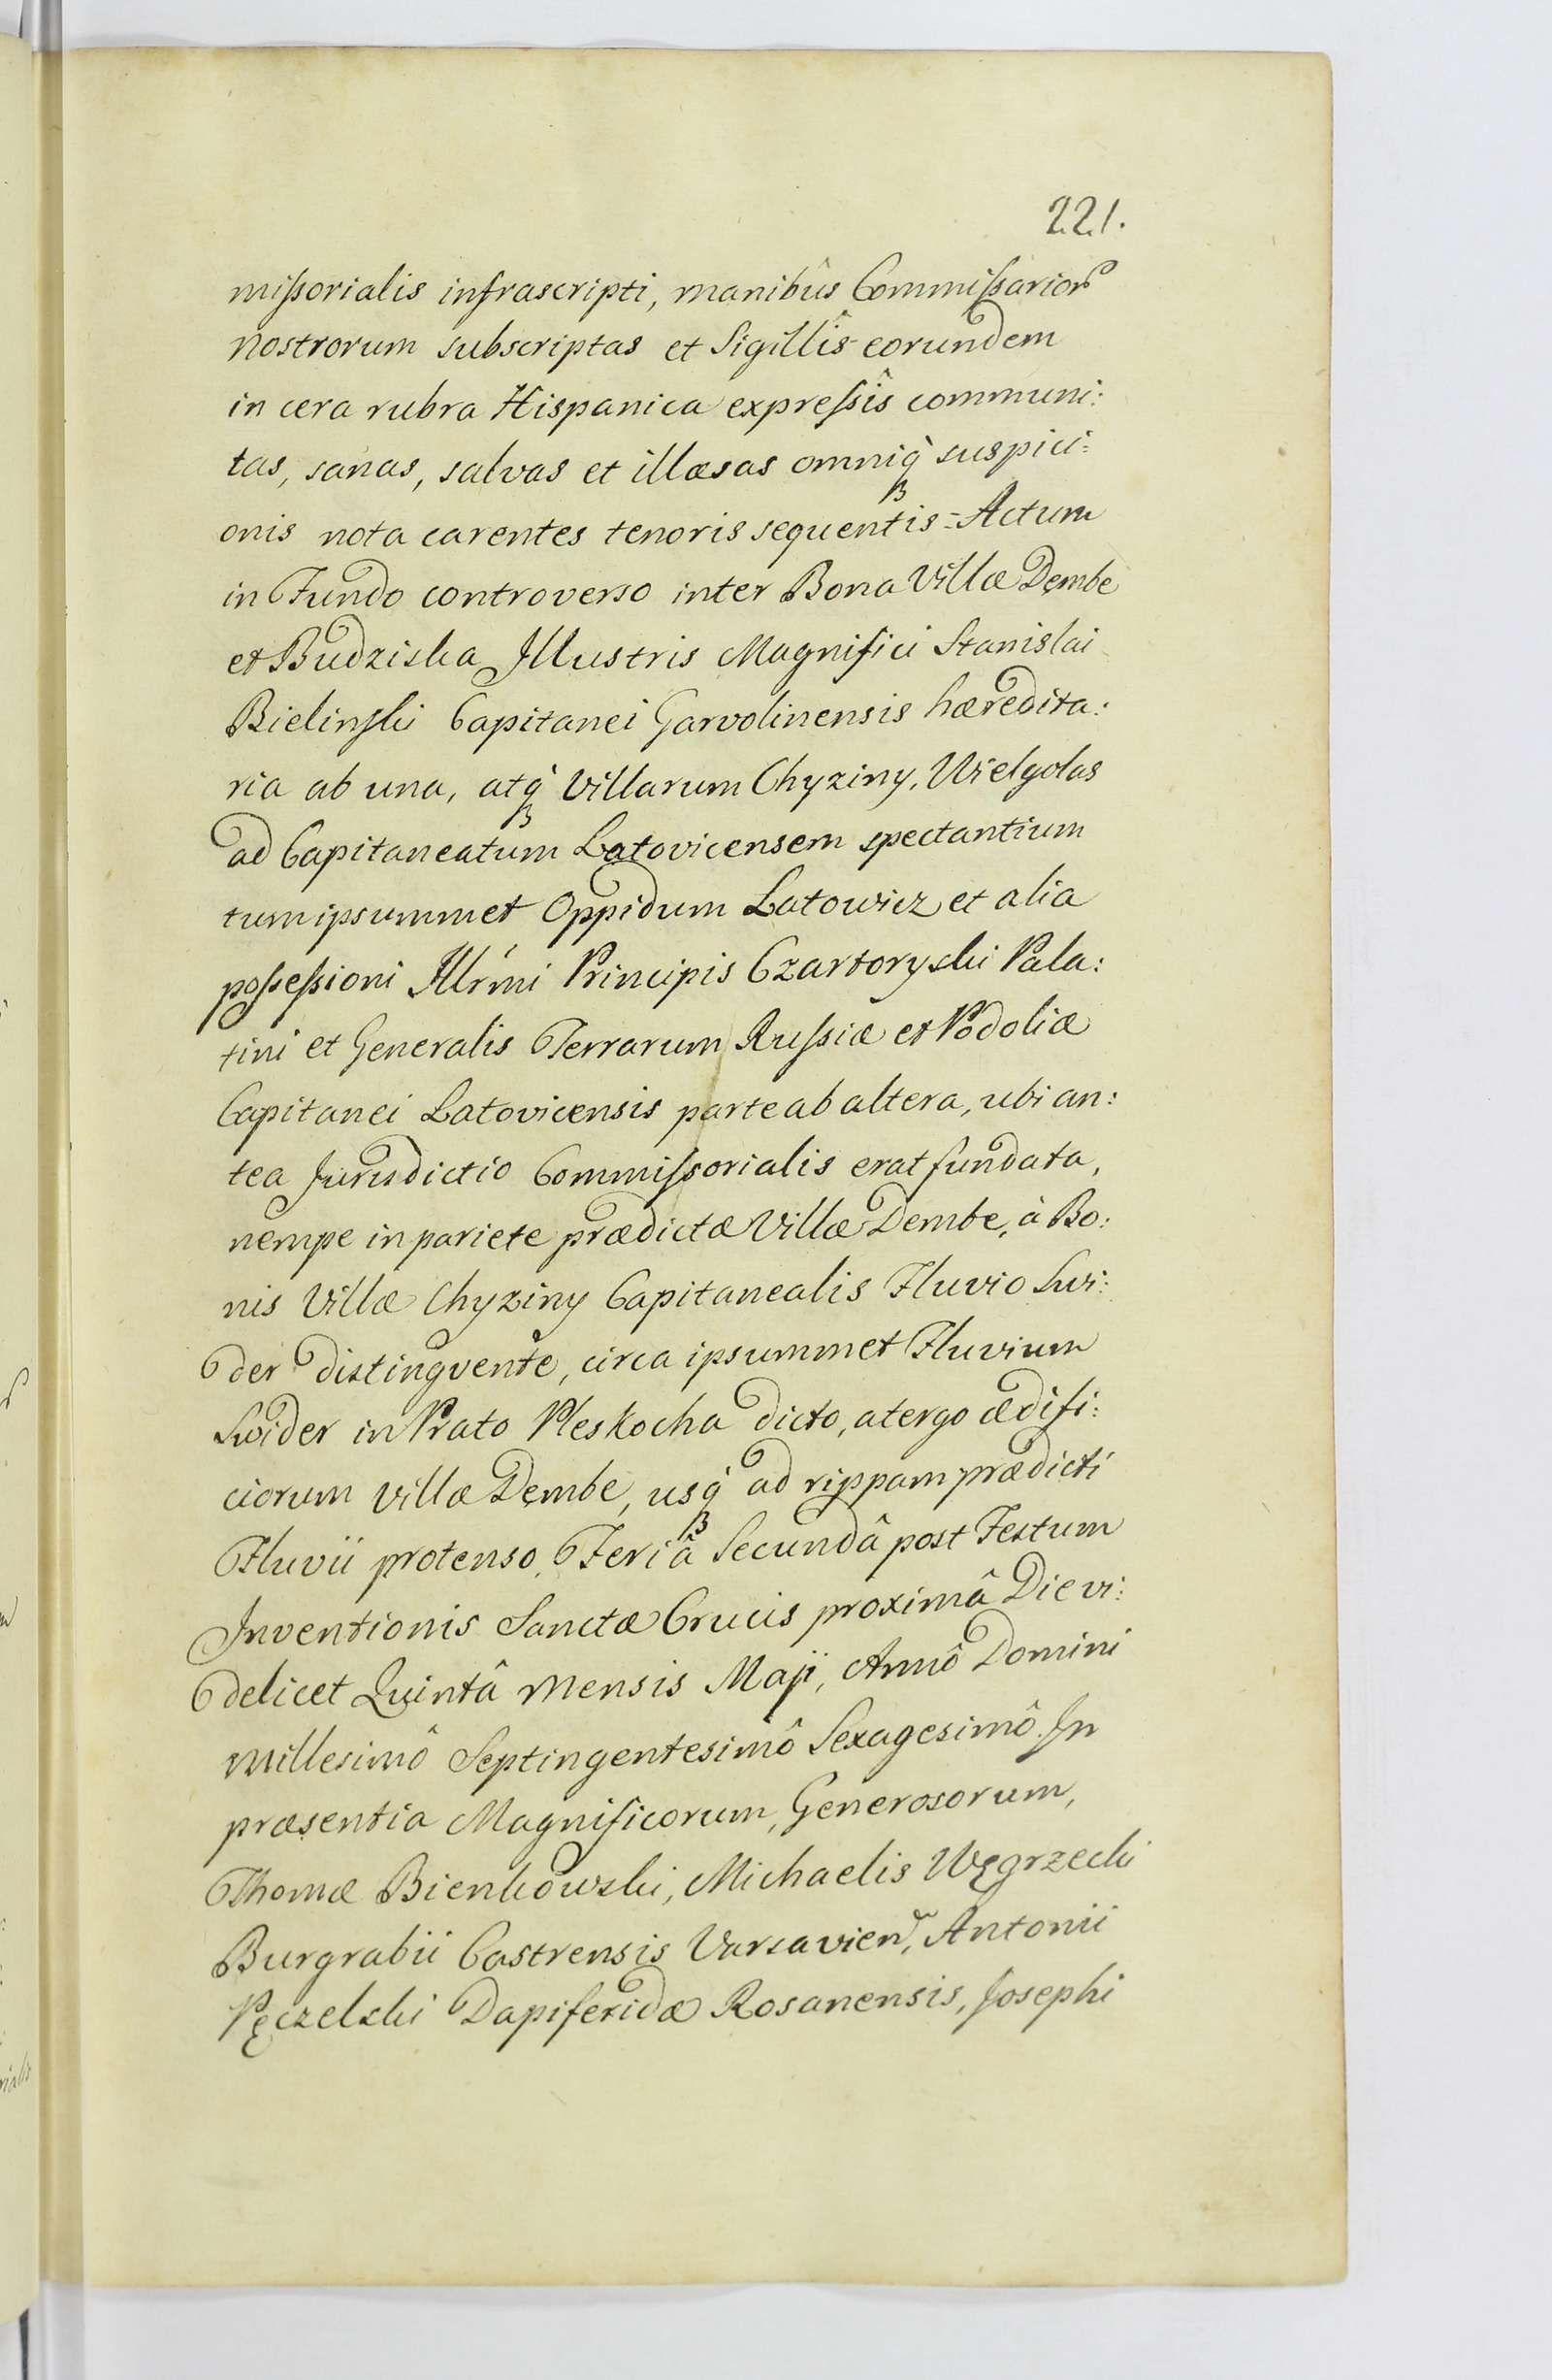 221.
mißorialis infrascripti, manibûs Commißarior
nostrorum subscriptas et Sigillîs eorundem
in cera rubra Hispanica expreßîs communi:
tas, sanas, salvas et illæsas omniq̀ suspici:
onis nota carentes tenoris sequentis = Actum
in Fundo controverso inter Bona Villæ Dembe
et Budziska Illustris Magnifici Stanislai
Bielinski Capitanei Garvolinensis hæredita:
ria ab una, atq̀ Villarum Chyziny, Wielgolas
ad Capitaneatum Latovicensem spectantium
tum ipsummet Oppidum Latowicz et alia
poßeßioni Illrḿi Principis Czartoryski Pala:
tini et Generalis Terrarum Rußiæ et Podoliæ
Capitanei Latovicensis parte ab altera, ubi an:
tea Jurisdictio Commißorialis erat fundata,
nempe in pariete prædictæ Villæ Dembe, à Bo:
nis Villæ Chyziny Capitanealis Fluvio Swi:
der distingvente, circa ipsummet Fluvium
Swider in Prato Pleskocha dicto, a tergo ædifi:
ciorum Villæ Dembe, usq̀ ad rippam prædicti
Fluvii protenso, Feriâ Secundâ post Festum
Inventionis Sanctæ Crucis proximâ Die vi:
delicet Quintâ Mensis Maji, Annô Domini
Millesimô Septingentesimô Sexagesimô. In
præsentia Magnificorum, Generosorum,
Thomæ Bienkowski, Michaelis Węgrzecki
Burgrabii Castrensis Varsavien̄, Antonii
Pęczelski Dapiferidæ Rosanensis, Josephi